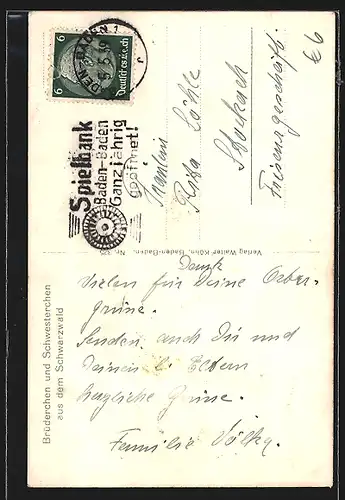 6 6
Deutsches Reich
BADEN-BADEN
5.5.39
Spielbank
Baden-Baden
Ganzjährig
geöffnet!
Fräulein
Rosa Löhle
Stockach
Friseurgeschäft.
€6
Verlag Walter Köhn, Baden-Baden. Nr.
Brüderchen und Schwesterchen
aus dem Schwarzwald
Dank
Vielen für Deine Oster-
grüße.
Senden auch Dir und
Deinen l. Eltern
herzliche Grüsse.
Familie Völky.